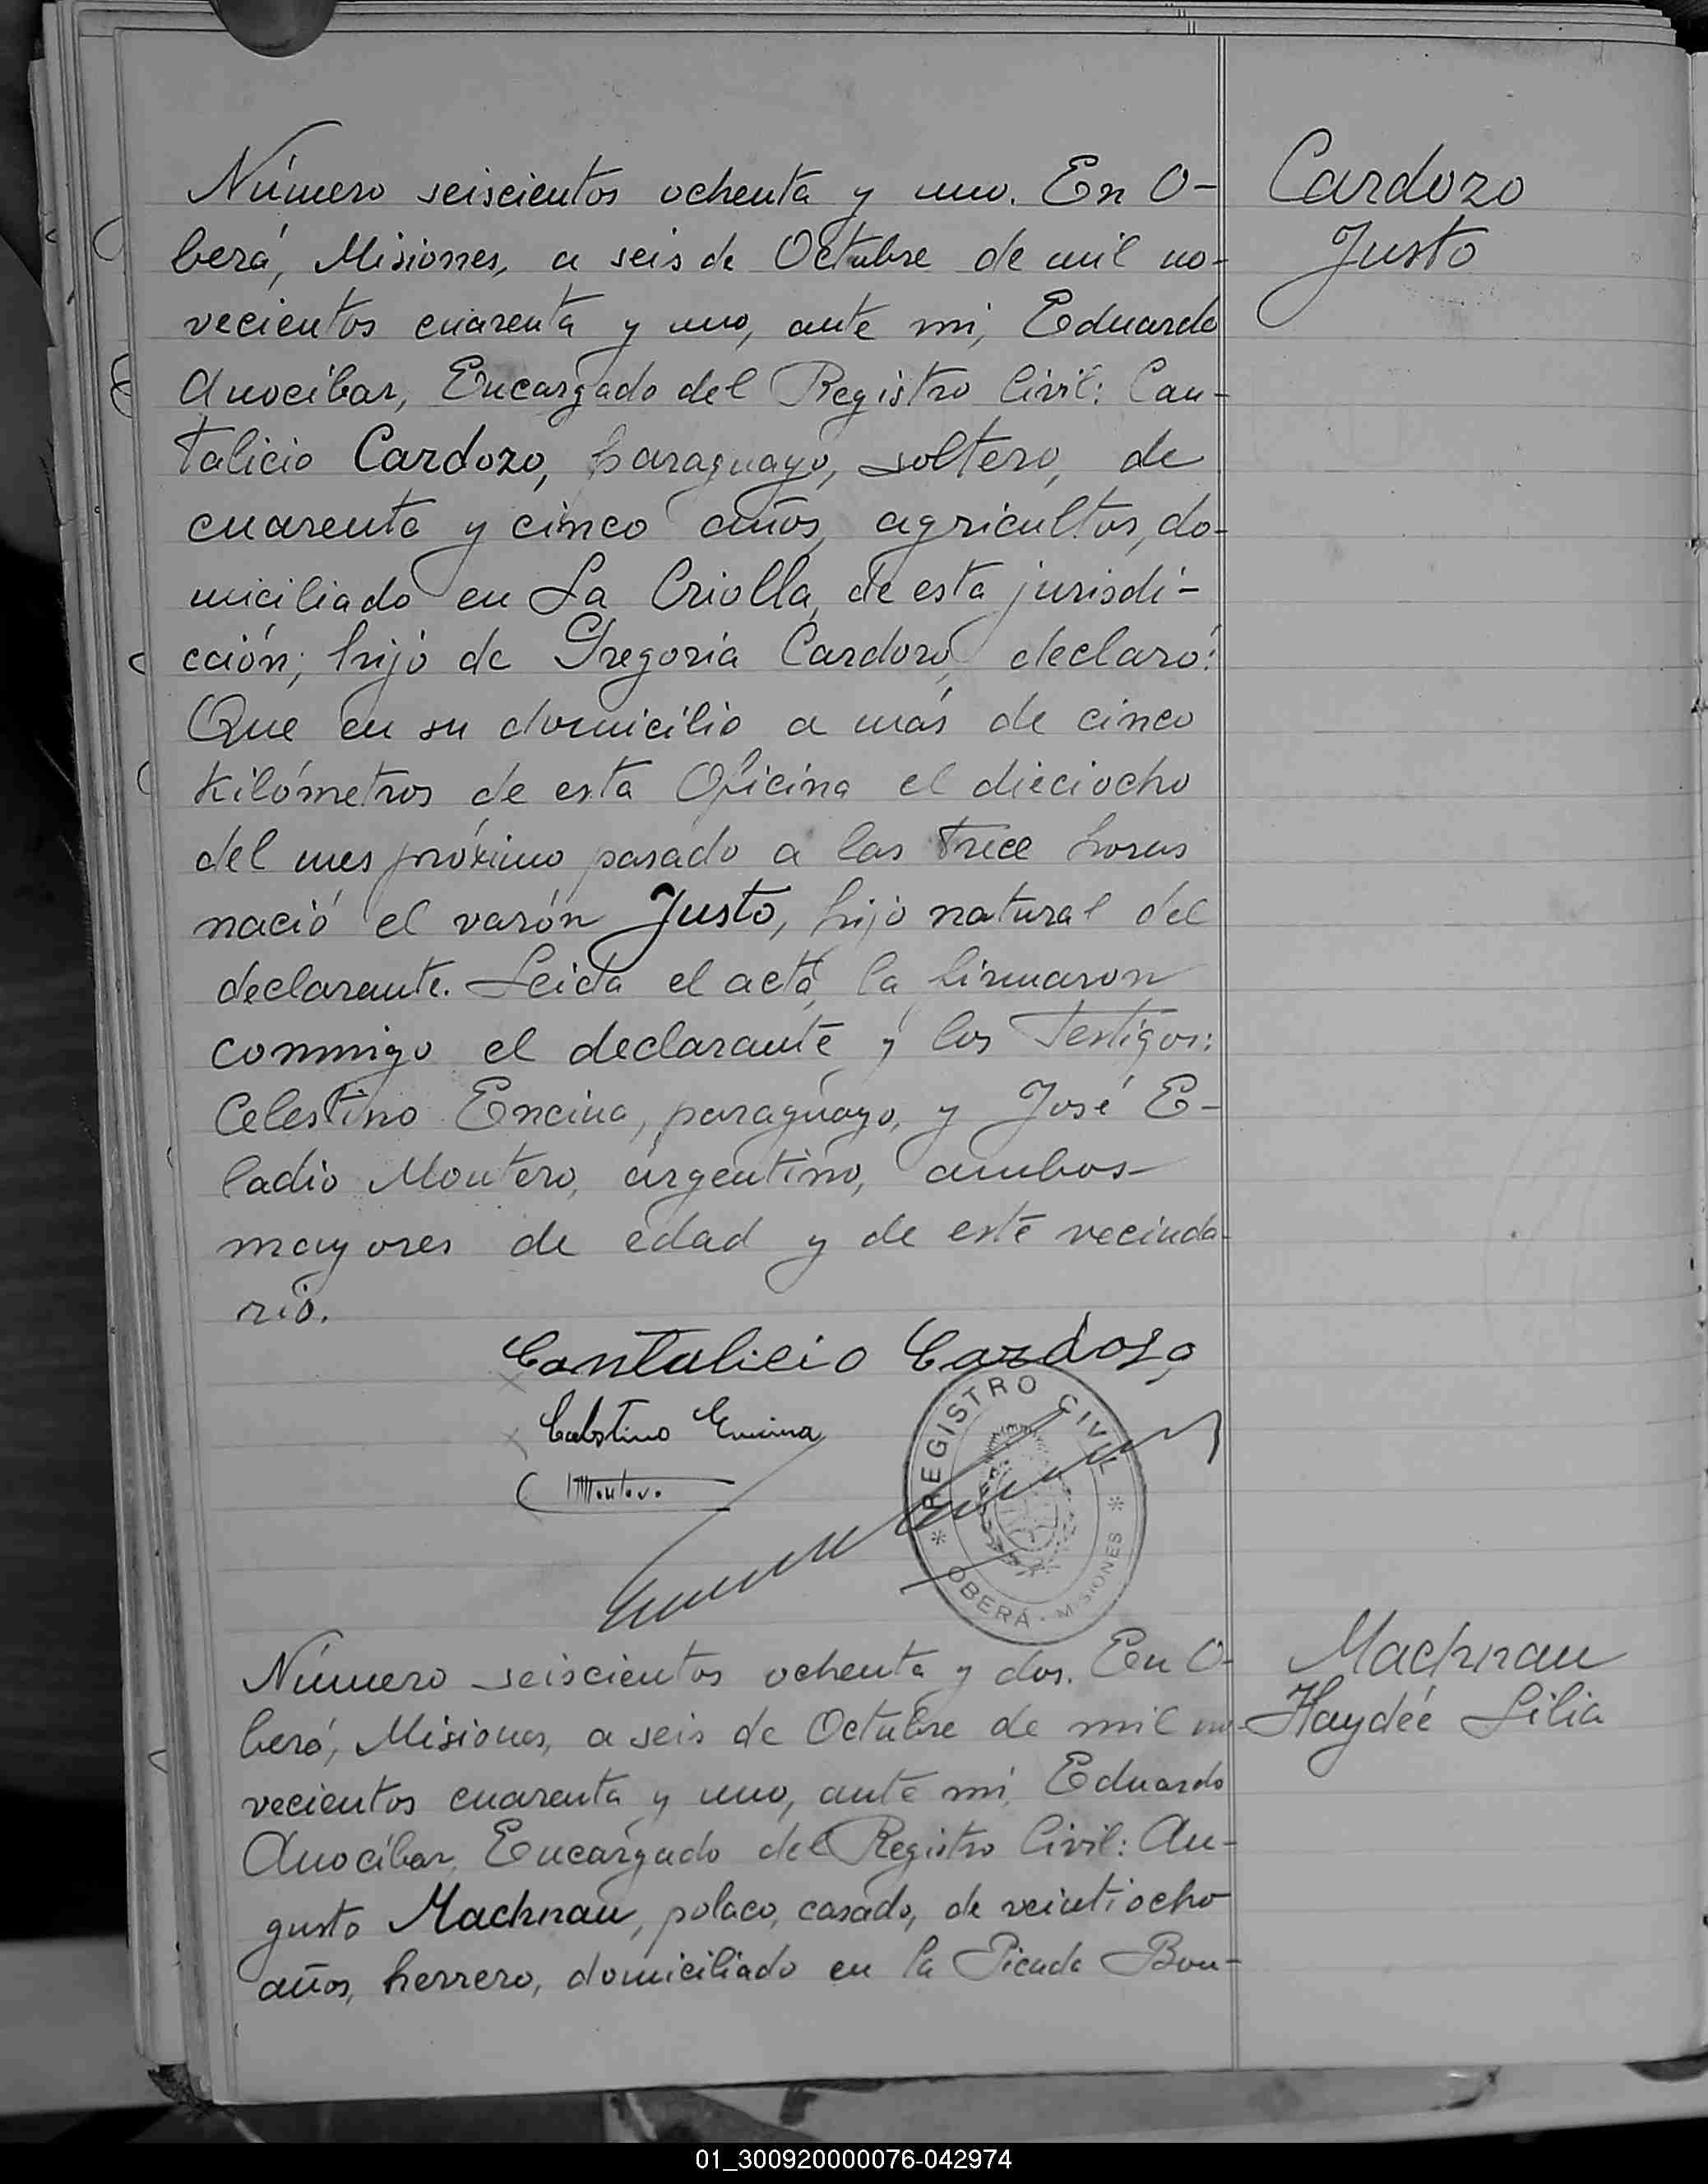 Número seiscientos ochenta y uno. En O-
berá, Misiones, a seis de Octubre de mil no-
vecientos cuarenta y uno, ante mi, Eduardo
Anocibar, Encargado del Registro Civil: Can-
talicio Cardozo, paraguayo, soltero, de
cuarenta y cinco años, agricultor, do-
miciliado en La Criolla, de esta jurisdi-
cción; hijo de Gregoria Cardozo, declaró:
Que en su domicilio a más de cinco
kilómetros de esta Oficina el dieciocho
del mes próximo pasado a las trece horas
nació el varón Justo, hijo natural del
declarante. Leida el acta, la firmaron
conmigo el declarante y los testigos:
Celestino Encina, paraguayo, y José E-
ladio Montero, argentino, ambos
mayores de edad y de este vecinda-
rio.
Cardozo
Justo
Cantalicio Cardozo
Celestino Encina
Montero
REGISTRO CIVIL
OBERÁ - MISIONES
Número seiscientos ochenta y dos. En O-
berá, Misiones, a seis de Octubre de mil no-
vecientos cuarenta y uno, ante mi, Eduardo
Anocíbar, Encargado del Registro Civil: Au-
gusto Machnau, polaco, casado, de veintiocho
años, herrero, domiciliado en la Picada Bon-
Machnau
Haydée Lilia
01_300920000076-042974